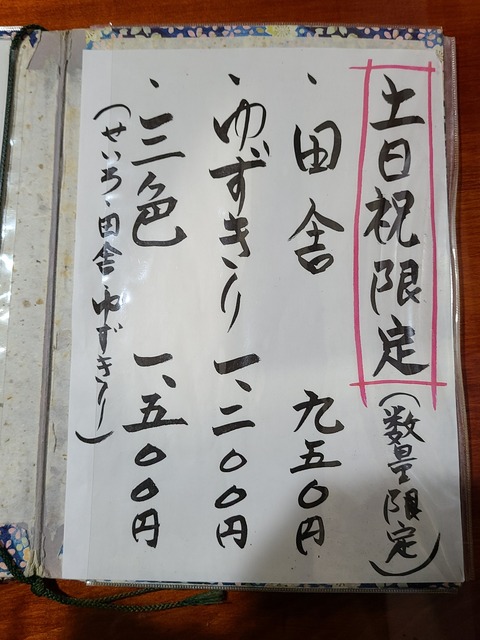 土日祝限定(数量限定)
、田舎 九五〇円
、ゆずきり 一、二〇〇円
、三色 一、五〇〇円
(せいろ、田舎、ゆずきり)